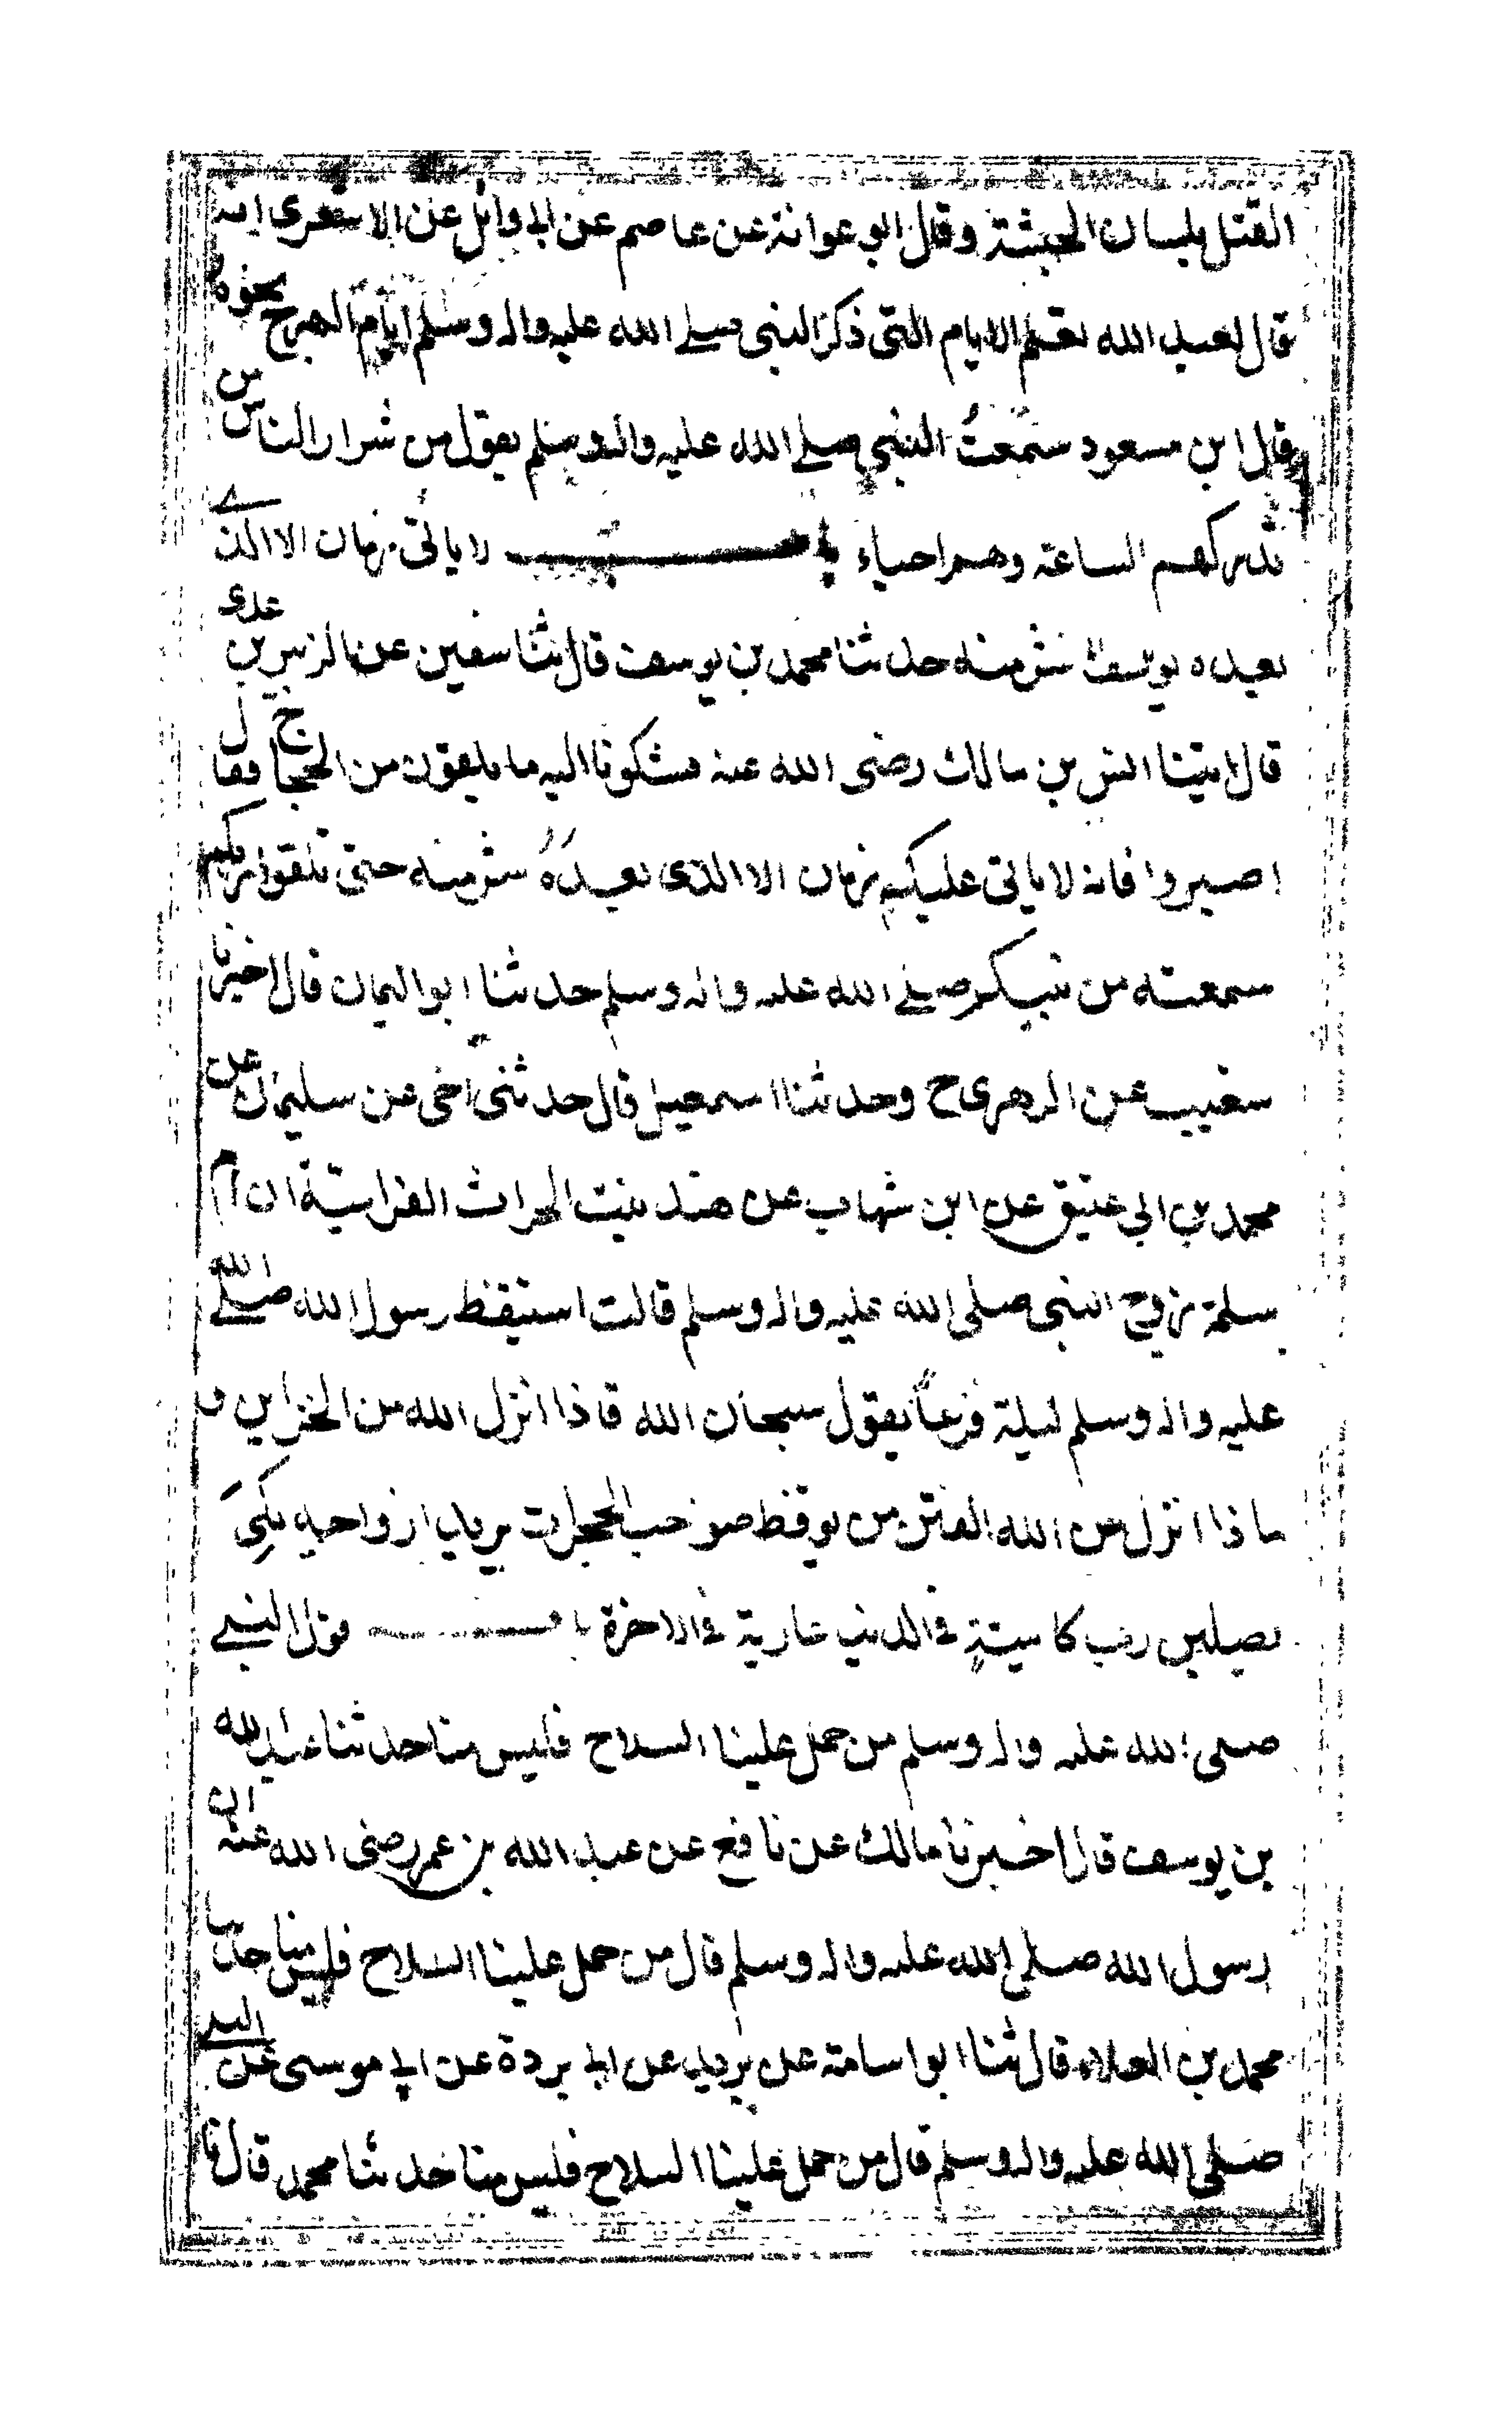 القتل بلسان الحبشة وقال ابو عوانة عن عاصم عن ابي وائل عن الاشعري انه
قال لعبد الله تعلم الايام التي ذكر النبي صلے الله عليه واله وسلم ايام الهرج نحوه
قال ابن مسعود سمعت النبي صلے الله عليه واله وسلم يقول من شرار الناس من
تدركهم الساعة وهم احياء باب لا ياتي زمان الا الذے
بعده شر منه حدثنا محمد بن يوسف قال ثنا سفين عن الزبير بن عدي
قال اتينا انس بن مالك رضى الله عنه فشكونا اليه ما يلقون من الحجاج فقال
اصبروا فانه لا ياتي عليكم زمان الا الذي بعده شر منه حتى تلقوا ربكم
سمعته من نبيكم صلے الله عليه واله وسلم حدثنا ابو اليمان قال اخبرنا
شعيب عن الزهري ح وحدثنا اسمعيل قال حدثني اخي عن سليمان عن
محمد بن ابي عتيق عن ابن شهاب عن هند بنت الحراث الفراسية ان ام
سلمة زوج النبي صلى الله عليه واله وسلم قالت استيقظ رسول الله صلے الله
عليه واله وسلم ليلة فزعاً يقول سبحان الله ماذا انزل الله من الخزاين و
ماذا انزل من الله الفتن من يوقظ صواحب الحجرات يريد ازواجه لكي
يصلين رب كاسيةٍ في الدنيا عارية في الاخرة باب قول النبے
صلى الله عليه واله وسلم من حمل علينا السلاح فليس منا حدثنا عبد الله
بن يوسف قال اخبرنا مالك عن نافع عن عبد الله بن عمر رضى الله عنه ان
رسول الله صلى الله عليه واله وسلم قال من حمل علينا السلاح فليس منا حدثنا
محمد بن العلاء قال ثنا ابو اسامة عن بريد عن ابي بردة عن ابي موسى عن النبے
صلى الله عليه واله وسلم قال من حمل علينا السلاح فليس منا حدثنا محمد قال نا